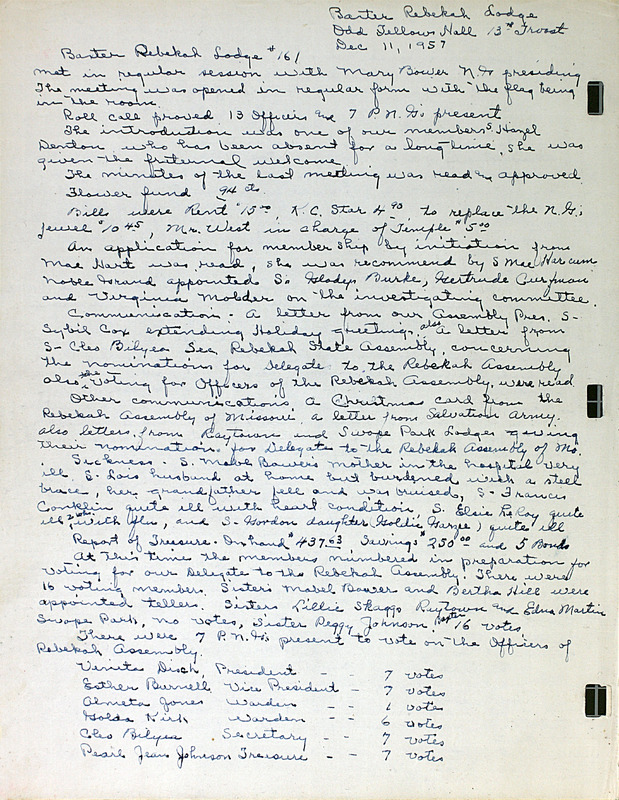 Baxter Rebekah Lodge
Odd Fellows Hall 13th & Troost
Dec 11, 1957
Baxter Rebekah Lodge #161
met in regular session with Mary Bower N.G. presiding
The meeting was opened in regular form with the flag being
in the room.
Roll call proved 13 Officers and 7 P.N.G's present
The introduction was one of our members S. Hazel
Denton who has been absent for a long time, she was
given the fraternal welcome.
The minutes of the last meeting was read & approved.
Flower fund 94 cts
Bills were Rent $15.00, K.C. Star 4.90, to replace the N.G.'s
jewel $10.45, Mr. West in charge of Temple $5.00
An application for membership by initiation from
Mae Hart was read, she was recommend by S Mae Harcum
Noble Grand appointed S. Gladys Burke, Gertrude
and Virginia Molder on the investigating committee.
Communication - A letter from our Assembly Pres. S-
Sybil Cox extending Holiday greetings, also A letter from
S- Cleo Bilyea Sec. Rebekah State Assembly, concerning
the nominations for delegate to the Rebekah Assembly
also the Voting for Officers of the Rebekah Assembly, were read
Other communications, a Christmas card from the
Rebekah Assembly of Missouri, a letter from Salvation Army.
also letters from Raytown and Swope Park Lodges giving
their nomination for Delegate to the Rebekah Assembly of Mo.
Sickness - S. Mabel Bowers Mother in the hospital very
ill. S. Lois husband at home but burdened with a steel
brace, her grandfather fell and was bruised, S- Francis
Conklin quite ill with heart condition, S. Elsie LeRoy quite
ill with flu, and S- Gordon daughter (Goldie) quite ill
Report of Treasure - On hand $437.63 Savings $250.00 and 5 Bonds
At this time the members numbered in preparation for
voting for our Delegate to the Rebekah Assembly. There were
16 voting members. Sisters Mabel Bower and Bertha Hill were
appointed tellers. Sisters Lillie Skaggs Raytown and Edna Martin
Swope Park, no votes, Sister Peggy Johnson Baxter 16 votes.
There were 7 P.N.G's present to vote on the Officers of
Rebekah Assembly.
Venita Disch, President - - 7 votes
Esther Burnell Vice President - 7 votes
Almeta Jones Warden - - 1 votes
Golda Kirk Warden - - 6 votes
Cleo Bilyea Secretary - - 7 votes
Pearl Jean Johnson Treasure - - 7 votes